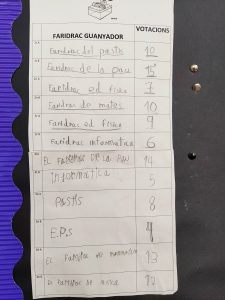 FARIDRAC GUANYADOR VOTACIONS
Faridrac del pastís 10
Faridrac de la pau 15
Faridrac ed física 7
Faridrac de mates 10
Faridrac ed física 9
Faridrac informàtica 6
EL FARIDRAC DE LA PAU 14
informàtica 5
PASTIS 8
E.P.S 4
EL FARIDRAC DE 13
EL FARIDRAC DE